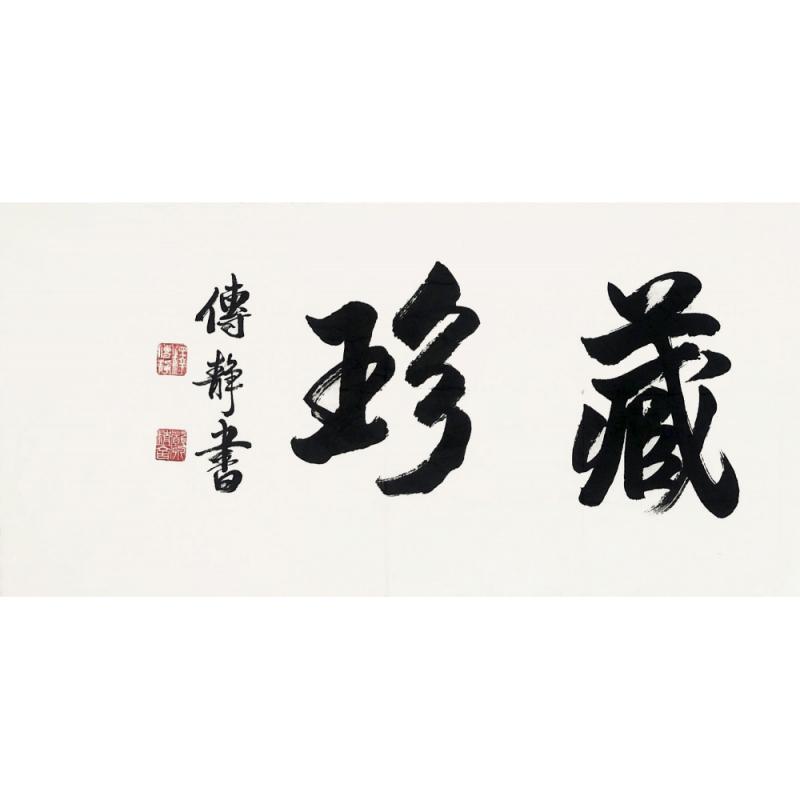 藏珍
傳靜書